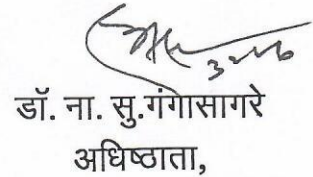 डॉ. ना. सु.गंगासागरे
अधिष्ठाता,